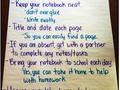 - Keep your notebook neat.
- don't over glue
- Write neatly
- Title and date each page
- So you can easily find a page.
- If you are absent, get with a partner
to complete any notes/tasks
- Bring your notebook to school each day
- Yes, you can take it home to help
with homework